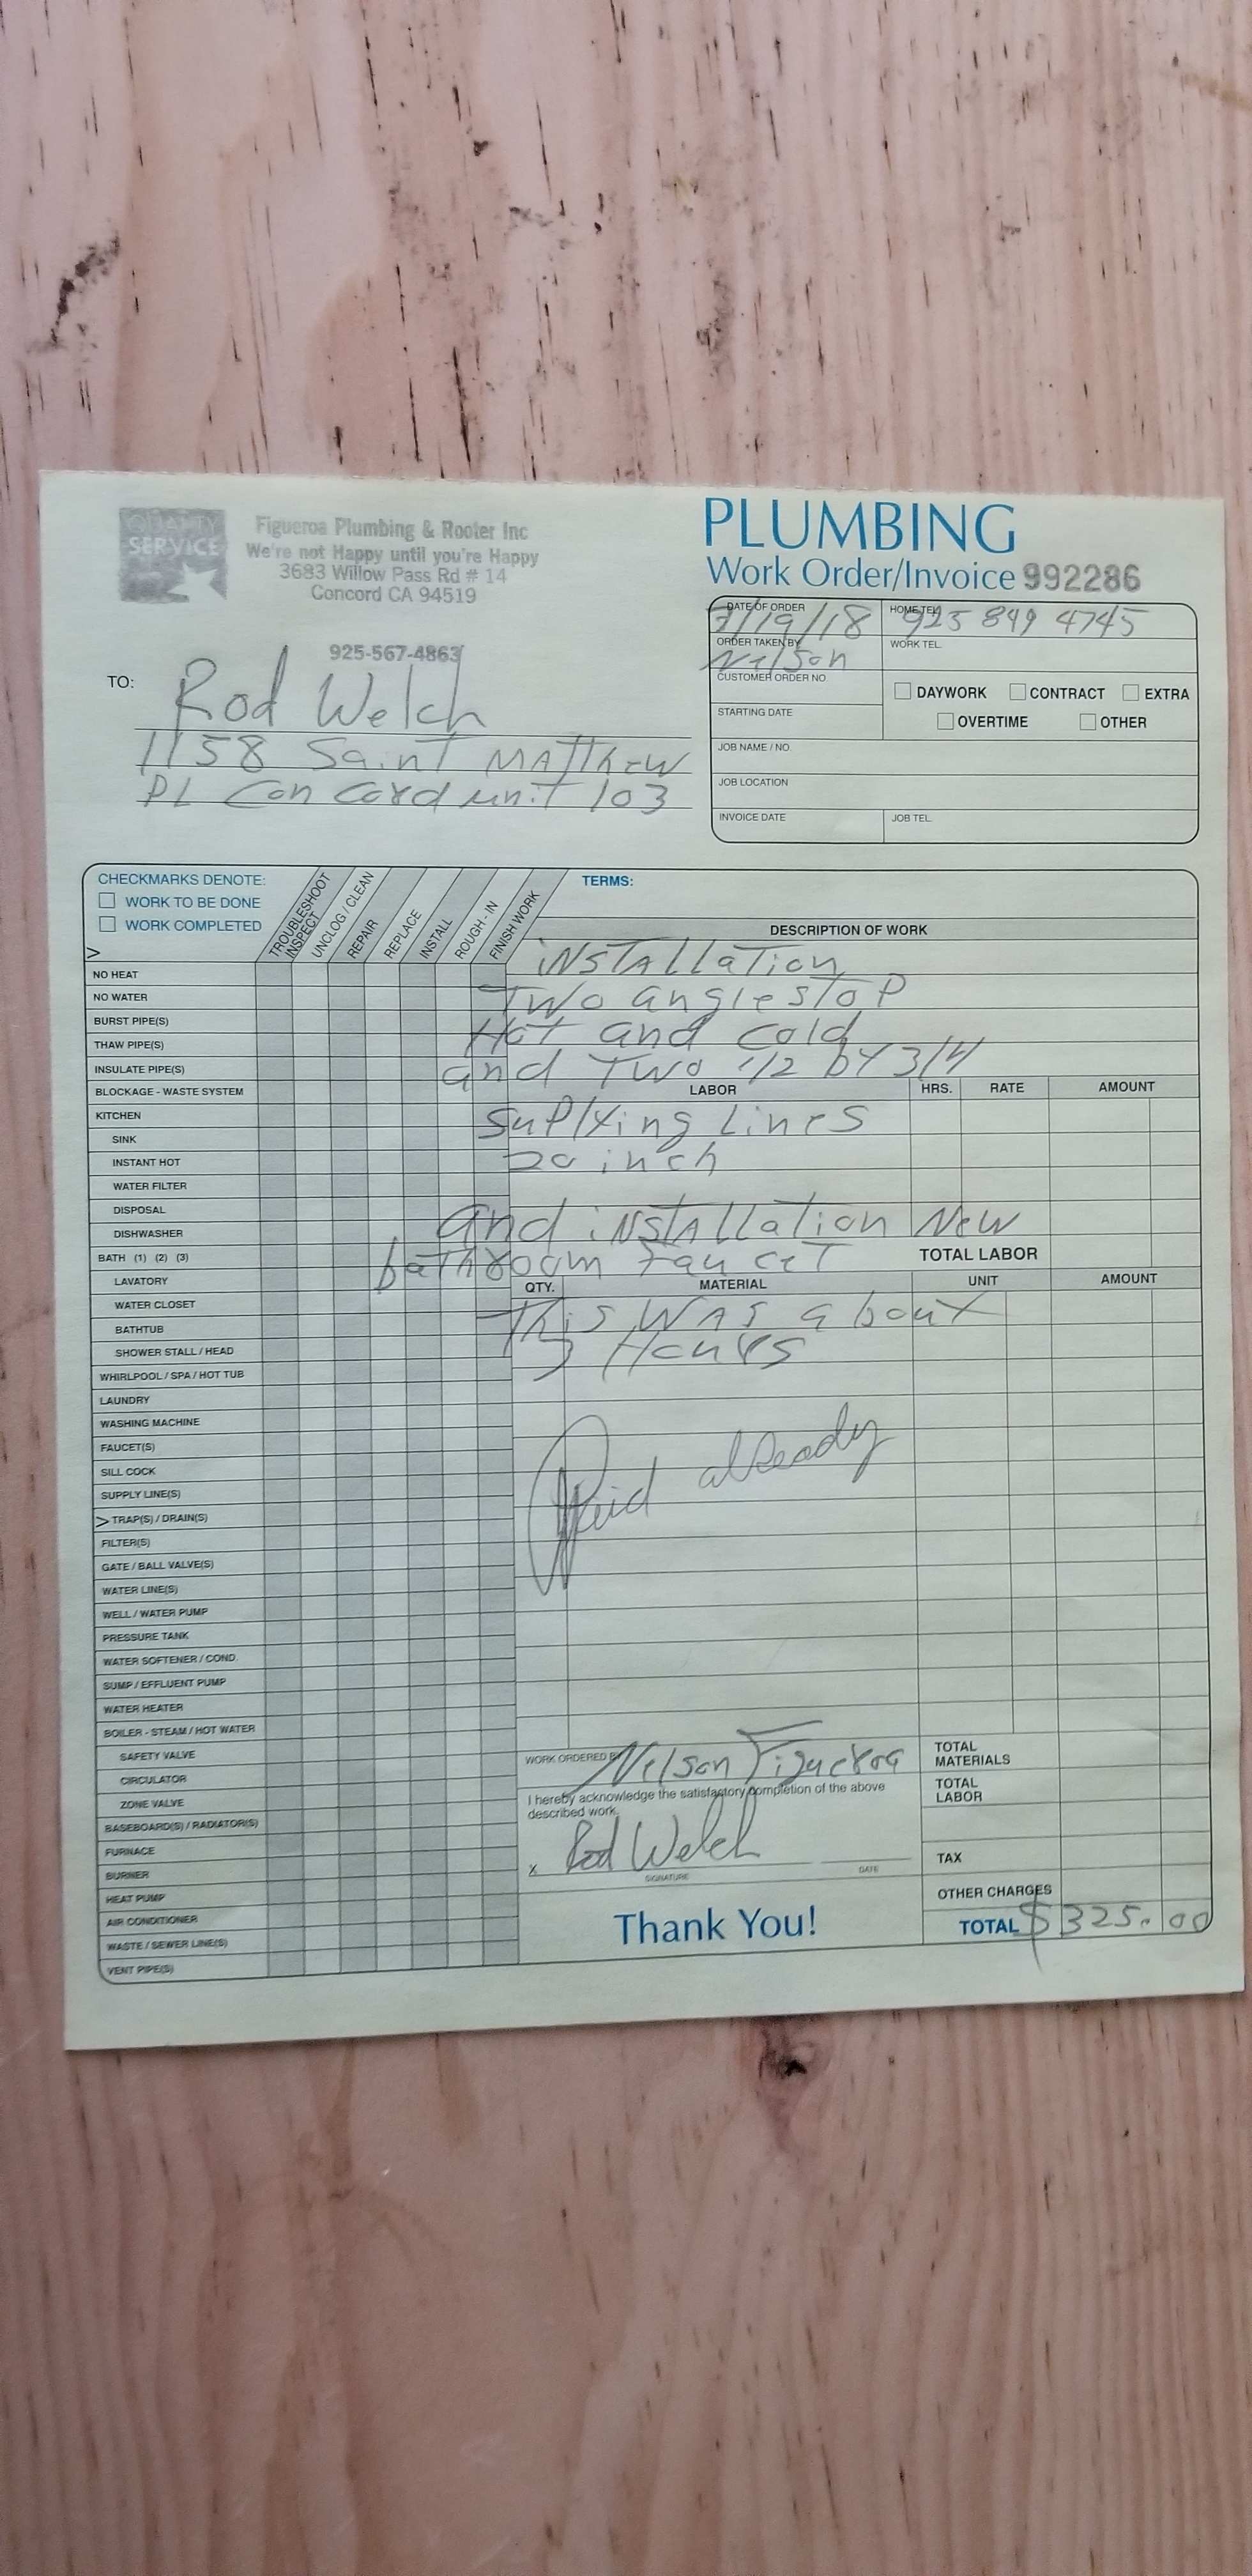 QUALITY
SERVICE
Figueroa Plumbing & Rooter Inc
We're not Happy until you're Happy
3683 Willow Pass Rd # 14
Concord CA 94519
925-567-4863
PLUMBING
Work Order/Invoice 992286
DATE OF ORDER 7/19/18
HOME TEL. 925 849 4745
ORDER TAKEN BY Nelson
WORK TEL.
CUSTOMER ORDER NO.
DAYWORK CONTRACT EXTRA
OVERTIME OTHER
STARTING DATE
JOB NAME / NO.
JOB LOCATION
INVOICE DATE
JOB TEL.
TO: Rod Welch
1158 Saint MATThew
PL Concord unit 103
CHECKMARKS DENOTE:
WORK TO BE DONE
WORK COMPLETED
>
TROUBLESHOOT INSPECT
UNCLOG / CLEAN
REPAIR
REPLACE
INSTALL
ROUGH - IN
FINISH WORK
TERMS:
DESCRIPTION OF WORK
iNSTAllaTion
Two anglesToP
HoT and cold
and Two 1/2 by 3/4
LABOR HRS. RATE AMOUNT
suPlying Lines
20 inch
and iNSTAllation New
baThroom FauceT
TOTAL LABOR
QTY. MATERIAL UNIT AMOUNT
This WAS abouT
3 Hours
Paid already
NO HEAT
NO WATER
BURST PIPE(S)
THAW PIPE(S)
INSULATE PIPE(S)
BLOCKAGE - WASTE SYSTEM
KITCHEN
SINK
INSTANT HOT
WATER FILTER
DISPOSAL
DISHWASHER
BATH (1) (2) (3)
LAVATORY
WATER CLOSET
BATHTUB
SHOWER STALL / HEAD
WHIRLPOOL / SPA / HOT TUB
LAUNDRY
WASHING MACHINE
FAUCET(S)
SILL COCK
SUPPLY LINE(S)
> TRAP(S) / DRAIN(S)
FILTER(S)
GATE / BALL VALVE(S)
WATER LINE(S)
WELL / WATER PUMP
PRESSURE TANK
WATER SOFTENER / COND.
SUMP / EFFLUENT PUMP
WATER HEATER
BOILER - STEAM / HOT WATER
SAFETY VALVE
CIRCULATOR
ZONE VALVE
BASEBOARD(S) / RADIATOR(S)
FURNACE
BURNER
HEAT PUMP
AIR CONDITIONER
WASTE / SEWER LINE(S)
VENT PIPE(S)
WORK ORDERED BY Nelson Figueroa
I hereby acknowledge the satisfactory completion of the above
described work.
X Rod Welch
SIGNATURE DATE
Thank You!
TOTAL MATERIALS
TOTAL LABOR
TAX
OTHER CHARGES
TOTAL $325.00